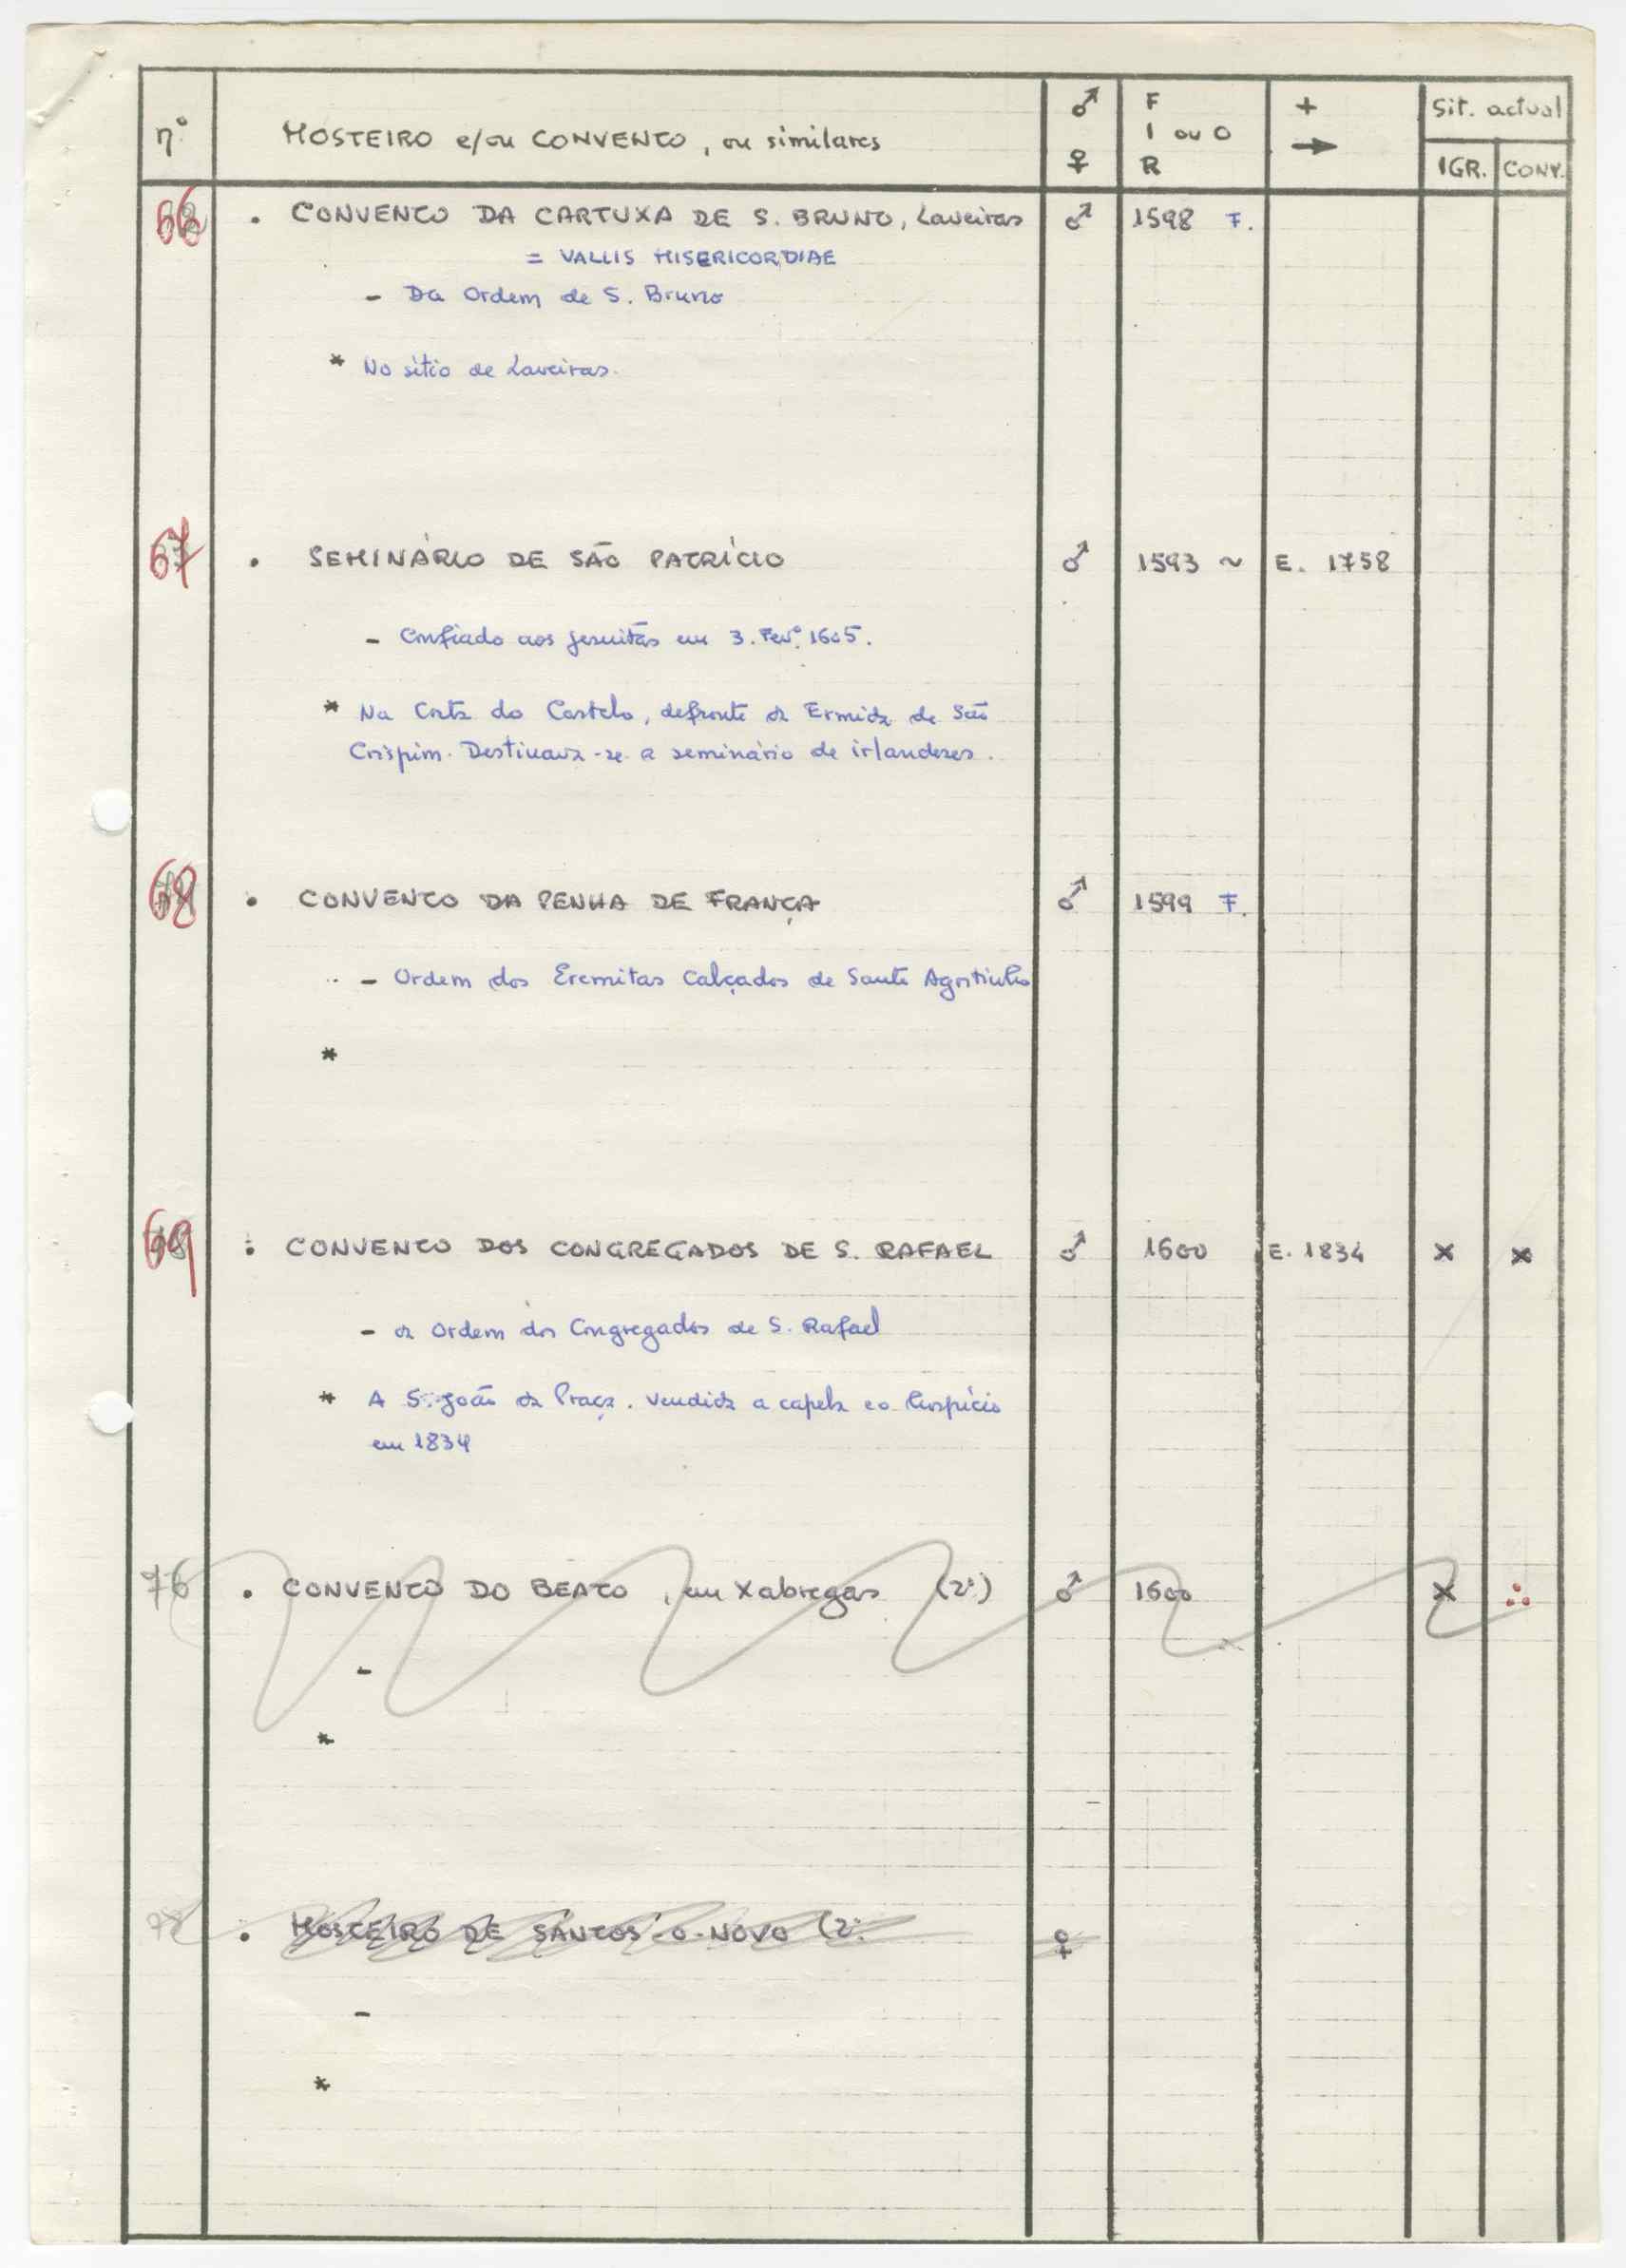 nº MOSTEIRO e/ou CONVENTO, ou similares ♂ ♀ F I ou O R + → Sit. actual
IGR. CONV.
66 • CONVENTO DA CARTUXA DE S. BRUNO, Laveiras ♂ 1598 F.
= VALLIS MISERICORDIAE
- Da Ordem de S. Bruno
* No sítio de Laveiras.
67 • SEMINÁRIO DE SÃO PATRÍCIO ♂ 1593 ~ E. 1758
- Confiado aos jesuítas em 3. Fevº. 1605.
* Na Costa do Castelo, defronte da Ermida de São
Crispim. Destinava-se a seminário de irlandeses.
68 • CONVENTO DA PENHA DE FRANÇA ♂ 1599 F.
- Ordem dos Eremitas Calçados de Santo Agostinho
*
69 • CONVENTO DOS CONGREGADOS DE S. RAFAEL ♂ 1600 E. 1834 x x
- da Ordem dos Congregados de S. Rafael
* A S. João da Praça. Vendida a capela e o hospício
em 1834
76 • CONVENTO DO BEATO, em Xabregas (2º) ♂ 1600 x ∴
-
*
• MOSTEIRO DE SANTOS-O-NOVO (2º ♀
-
*